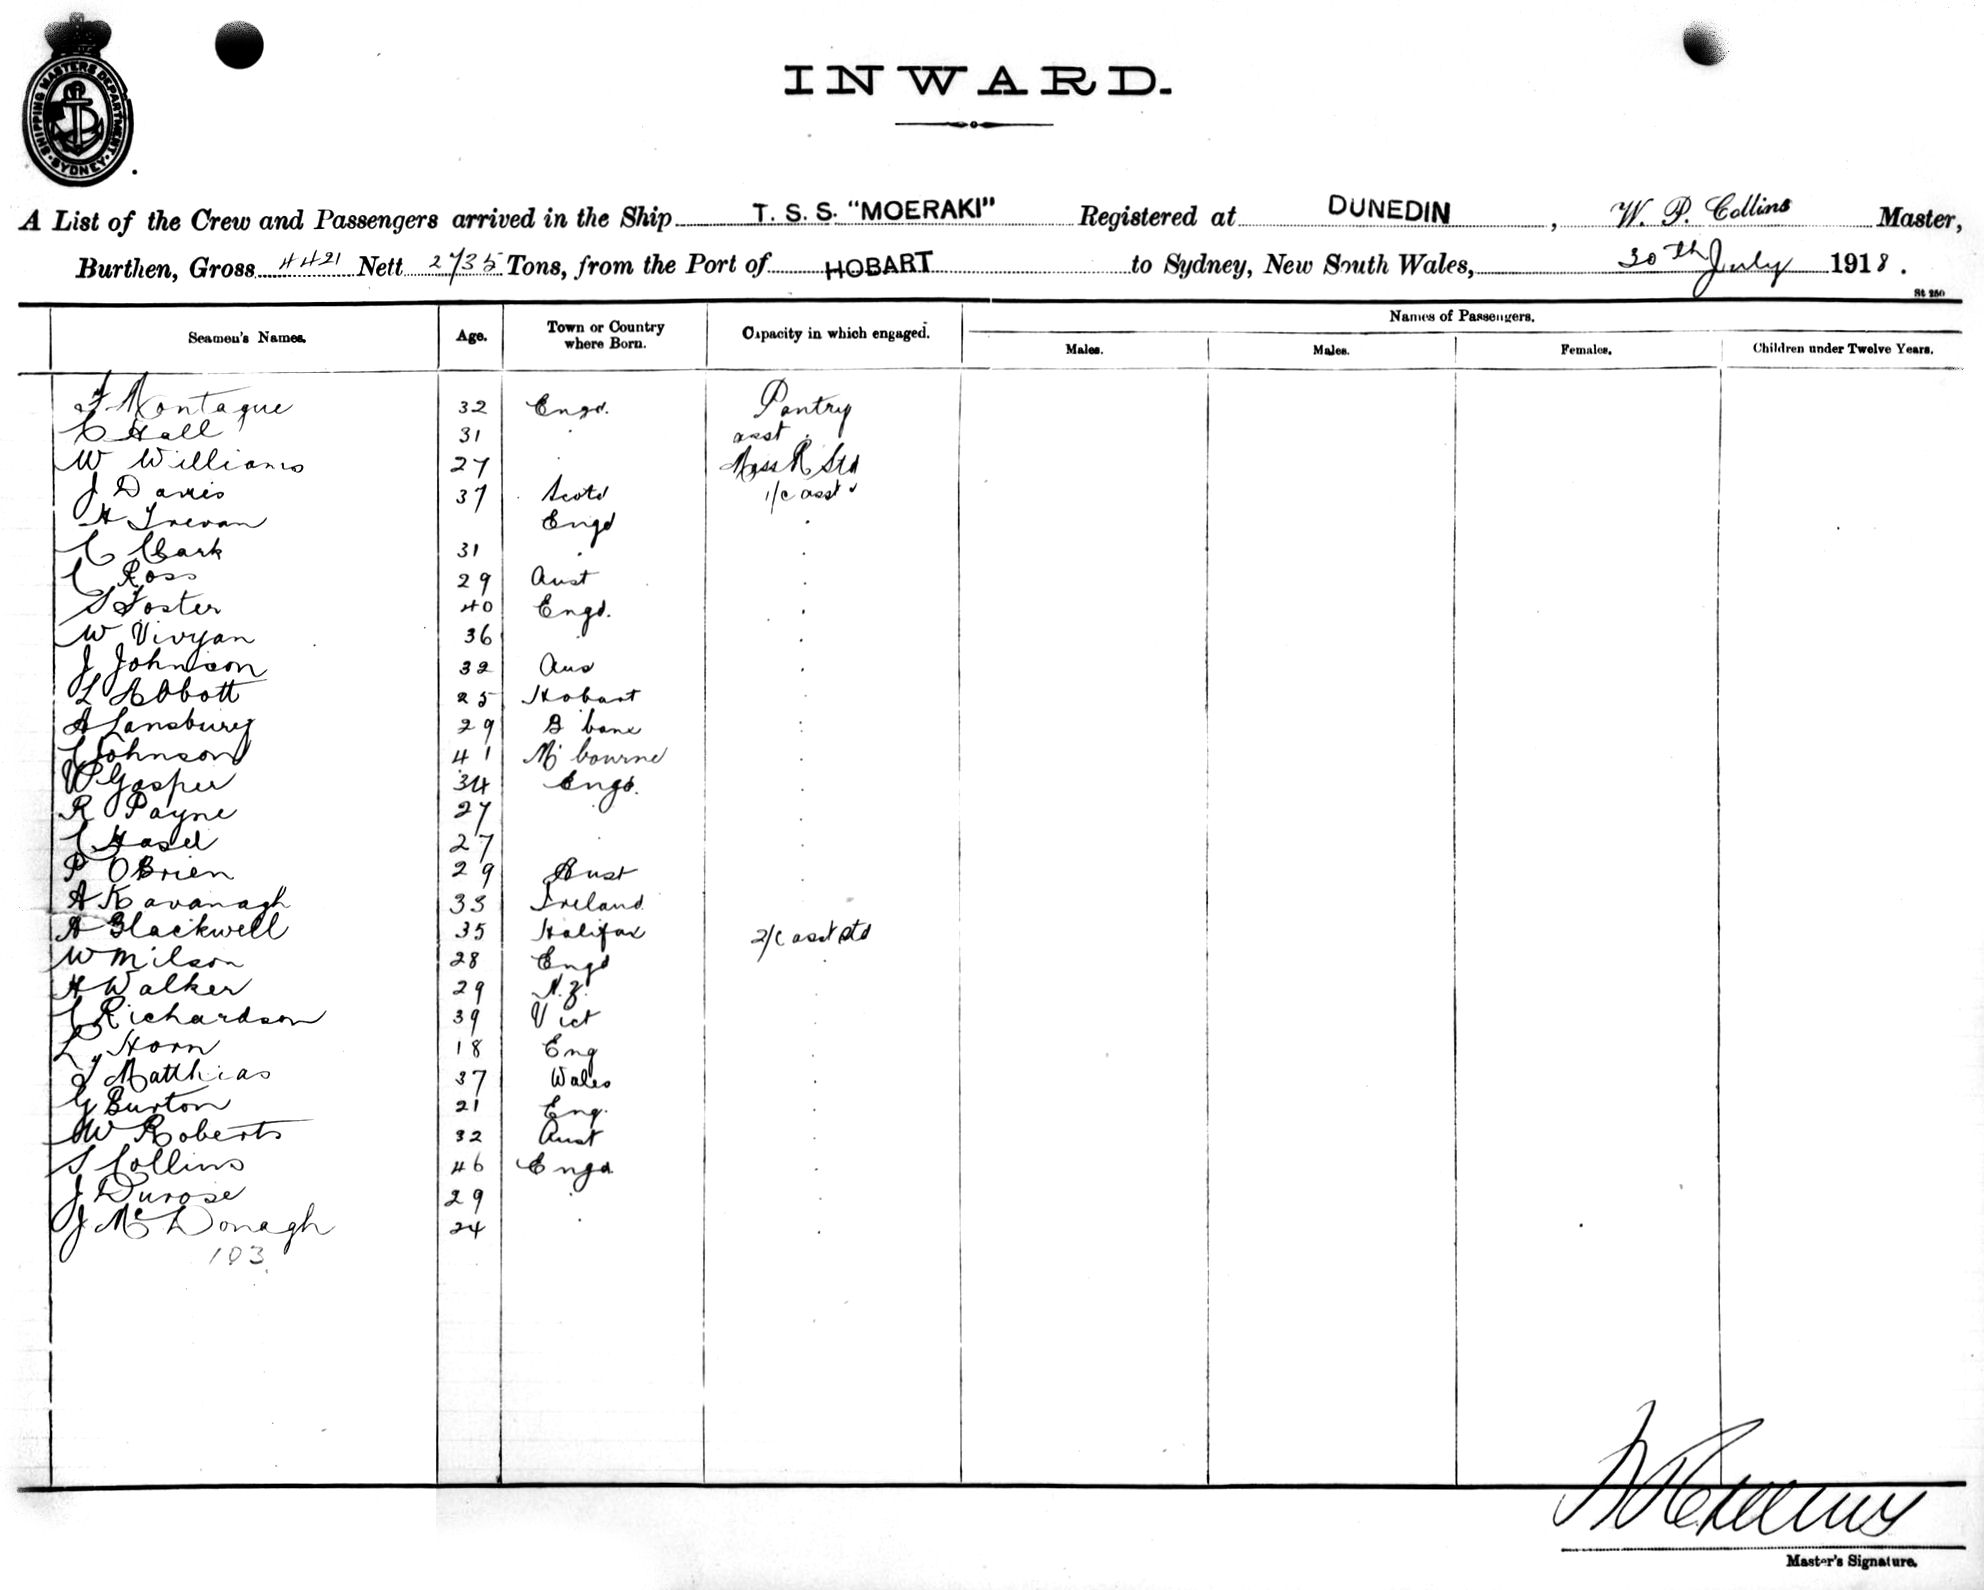 SHIPPING MASTERS DEPARTMENT SYDNEY
INWARD.
A List of the Crew and Passengers arrived in the Ship T. S. S. "MOERAKI" Registered at DUNEDIN, W. P. Collins Master,
Burthen, Gross 4421 Nett 2735 Tons, from the Port of HOBART to Sydney, New South Wales, 30th July 1918.
St 250
Seamen's Names. Age. Town or Country where Born. Capacity in which engaged. Names of Passengers.
Males. Males. Females. Children under Twelve Years.
F Montague 32 Engd. Pantry
C Hall 31 . asst .
W Williams 27 . Mess R Std
J Davis 37 Scotd 1/c asst
H Trevan Engd .
C Clark 31 . .
C Ross 29 Aust .
S Foster 40 Engd. .
W Vivyan 36 . .
J Johnson 32 Aus .
L Abbott 25 Hobart .
A Lansbury 29 B'bane .
C Johnson 41 M'bourne .
W Gasper 34 Engd. .
R Payne 27 . .
C Hasel 27 . .
P OBrien 29 Aust .
A Kavanagh 33 Ireland
A Blackwell 35 Halifax 2/c asst std
W Milson 28 Engd .
H Walker 29 N.Z. .
C Richardson 39 Vict .
L Horn 18 Eng .
F Matthias 37 Wales .
G Burton 21 Eng. .
W Roberts 32 Aust .
S Collins 46 Engd .
J Durose 29 . .
J McDonagh 24 . .
103
W P Collins
Master's Signature.